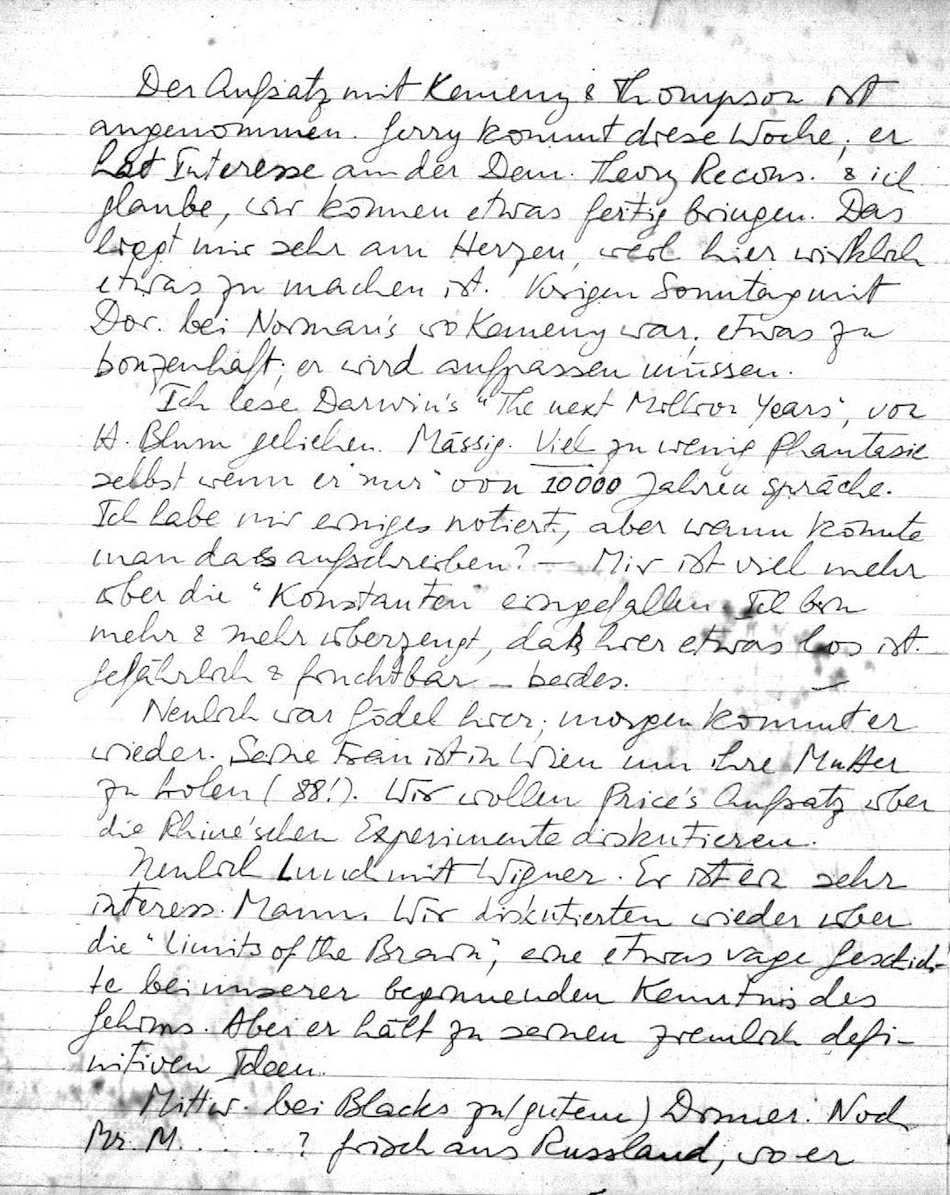 Der Aufsatz mit Kemeny & Thompson ist
angenommen. Gerry kommt diese Woche, er
hat Interesse an der Dem. Theory Recons. & ich
glaube, wir können etwas fertig bringen. Das
liegt mir sehr am Herzen, weil hier wirklich
etwas zu machen ist. Vorigen Sonntag mit
Dor. bei Norman's wo Kemeny war; etwas zu
bonzenhaft; er wird aufpassen müssen.
Ich lese Darwin's "The next Million Years", von
H. Blum geliehen. Mässig. Viel zu wenig Phantasie
selbst wenn er "nur" von 10000 Jahren spräche.
Ich habe mir einiges notiert, aber wann könnte
man das aufschreiben? — Mir ist viel mehr
über die "Konstanten" eingefallen. Ich bin
mehr & mehr überzeugt, daß hier etwas los ist.
Gefährlich & fruchtbar – beides.
Neulich war Gödel hier; morgen kommt er
wieder. Seine Frau ist in Wien um ihre Mutter
zu holen (88!). Wir wollen Price's Aufsatz über
die Rhine'schen Experimente diskutieren.
Neulich Lunch mit Wigner. Er ist ein sehr
interess. Mann. Wir diskutierten wieder über
die "Limits of the Brain", eine etwas vage Geschich-
te bei unserer beginnenden Kenntnis des
Gehirns. Aber er hält zu seinen ziemlich defi-
nitiven Ideen.
Mittw. bei Blacks zu (gutem) Dinner. Noch
Mr. M. . . . . . ? frisch aus Russland, wo er